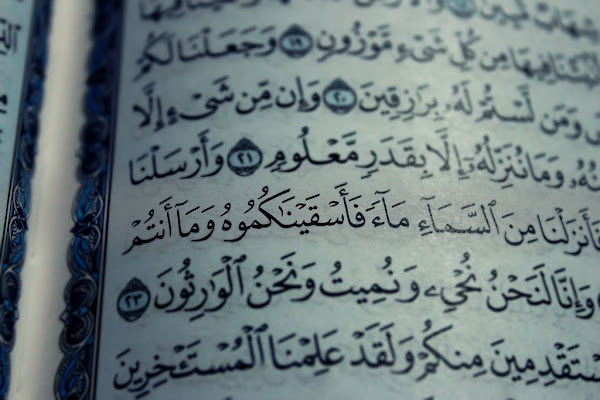 شِهَابٌ مُّبِينٌ
فِيهَا مِن كُلِّ شَىْءٍ مَّوْزُونٍ ١٩ وَجَعَلْنَا لَكُمْ
وَمَن لَّسْتُمْ لَهُۥ بِرَٰزِقِينَ ٢٠ وَإِن مِّن شَىْءٍ إِلَّا
وَمَا نُنَزِّلُهُۥٓ إِلَّا بِقَدَرٍ مَّعْلُومٍ ٢١ وَأَرْسَلْنَا
فَأَنزَلْنَا مِنَ ٱلسَّمَآءِ مَآءً فَأَسْقَيْنَٰكُمُوهُ وَمَآ أَنتُمْ
وَإِنَّا لَنَحْنُ نُحْىِۦ وَنُمِيتُ وَنَحْنُ ٱلْوَٰرِثُونَ ٢٣
سْتَقْدِمِينَ مِنكُمْ وَلَقَدْ عَلِمْنَا ٱلْمُسْتَـْٔخِرِينَ